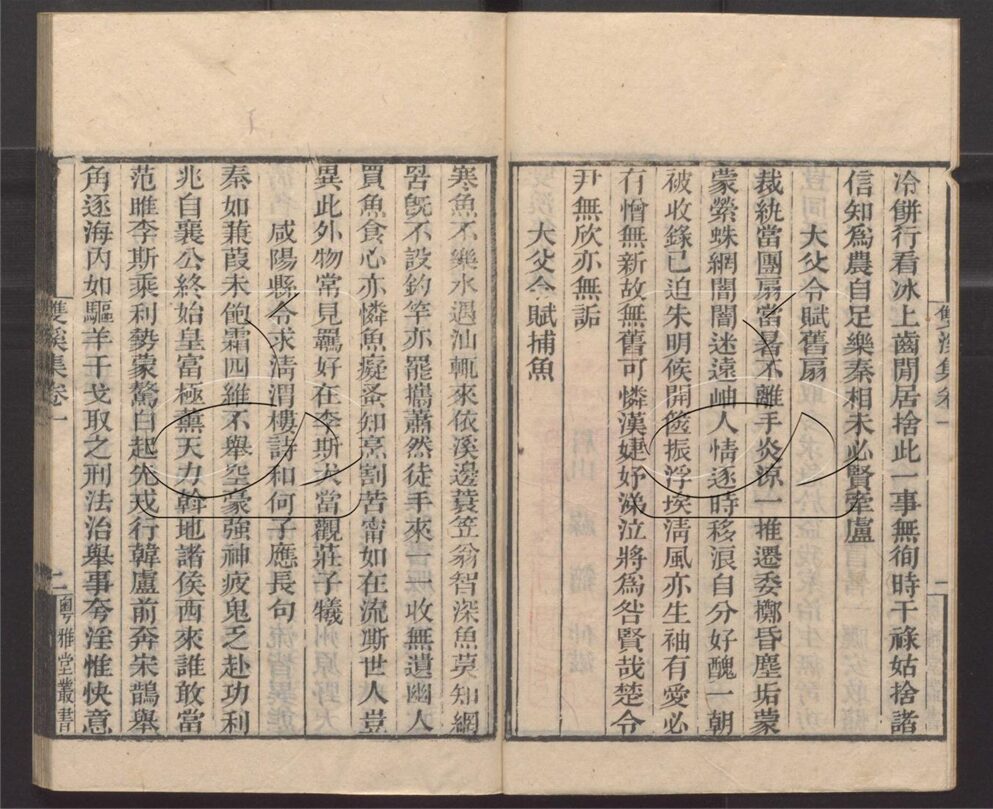 冷餅行看冰上齒閒居捨此一事無徇時干祿姑捨諸
信知爲農自足樂秦相未必賢牽盧
大父令賦舊扇
裁紈當團扇當暑不離手炎涼一推遷委擲昏塵垢蒙
蒙縈蛛網闇闇迷遠岫人情逐時移浪自分好醜一朝
被收錄已迫朱明候開篋振浮埃淸風亦生袖有愛必
有憎無新故無舊可憐漢婕妤涕泣將爲咎賢哉楚令
尹無欣亦無詬
大父令賦捕魚
寒魚不樂水遇汕輒來依溪邊蓑笠翁智深魚莫知網
罟旣不設釣竿亦罷攜蕭然徒手來一一收無遺幽人
買魚食心亦憐魚癡蚤知烹割苦甯如在流澌世人豈
異此外物常見羈好在李斯犬當觀莊子犧
咸陽縣令求淸渭樓詩和何子應長句
秦如蒹葭未飽霜四維不舉空豪強神疲鬼乏赴功利
兆自襄公終始皇富極薰天力斡地諸侯西來誰敢當
范雎李斯乘利勢蒙驁白起先戎行韓盧前奔宋鵲舉
角逐海內如驅羊干戈取之刑法治舉事夸淫惟快意
雙溪集卷一
二
粤雅堂叢書